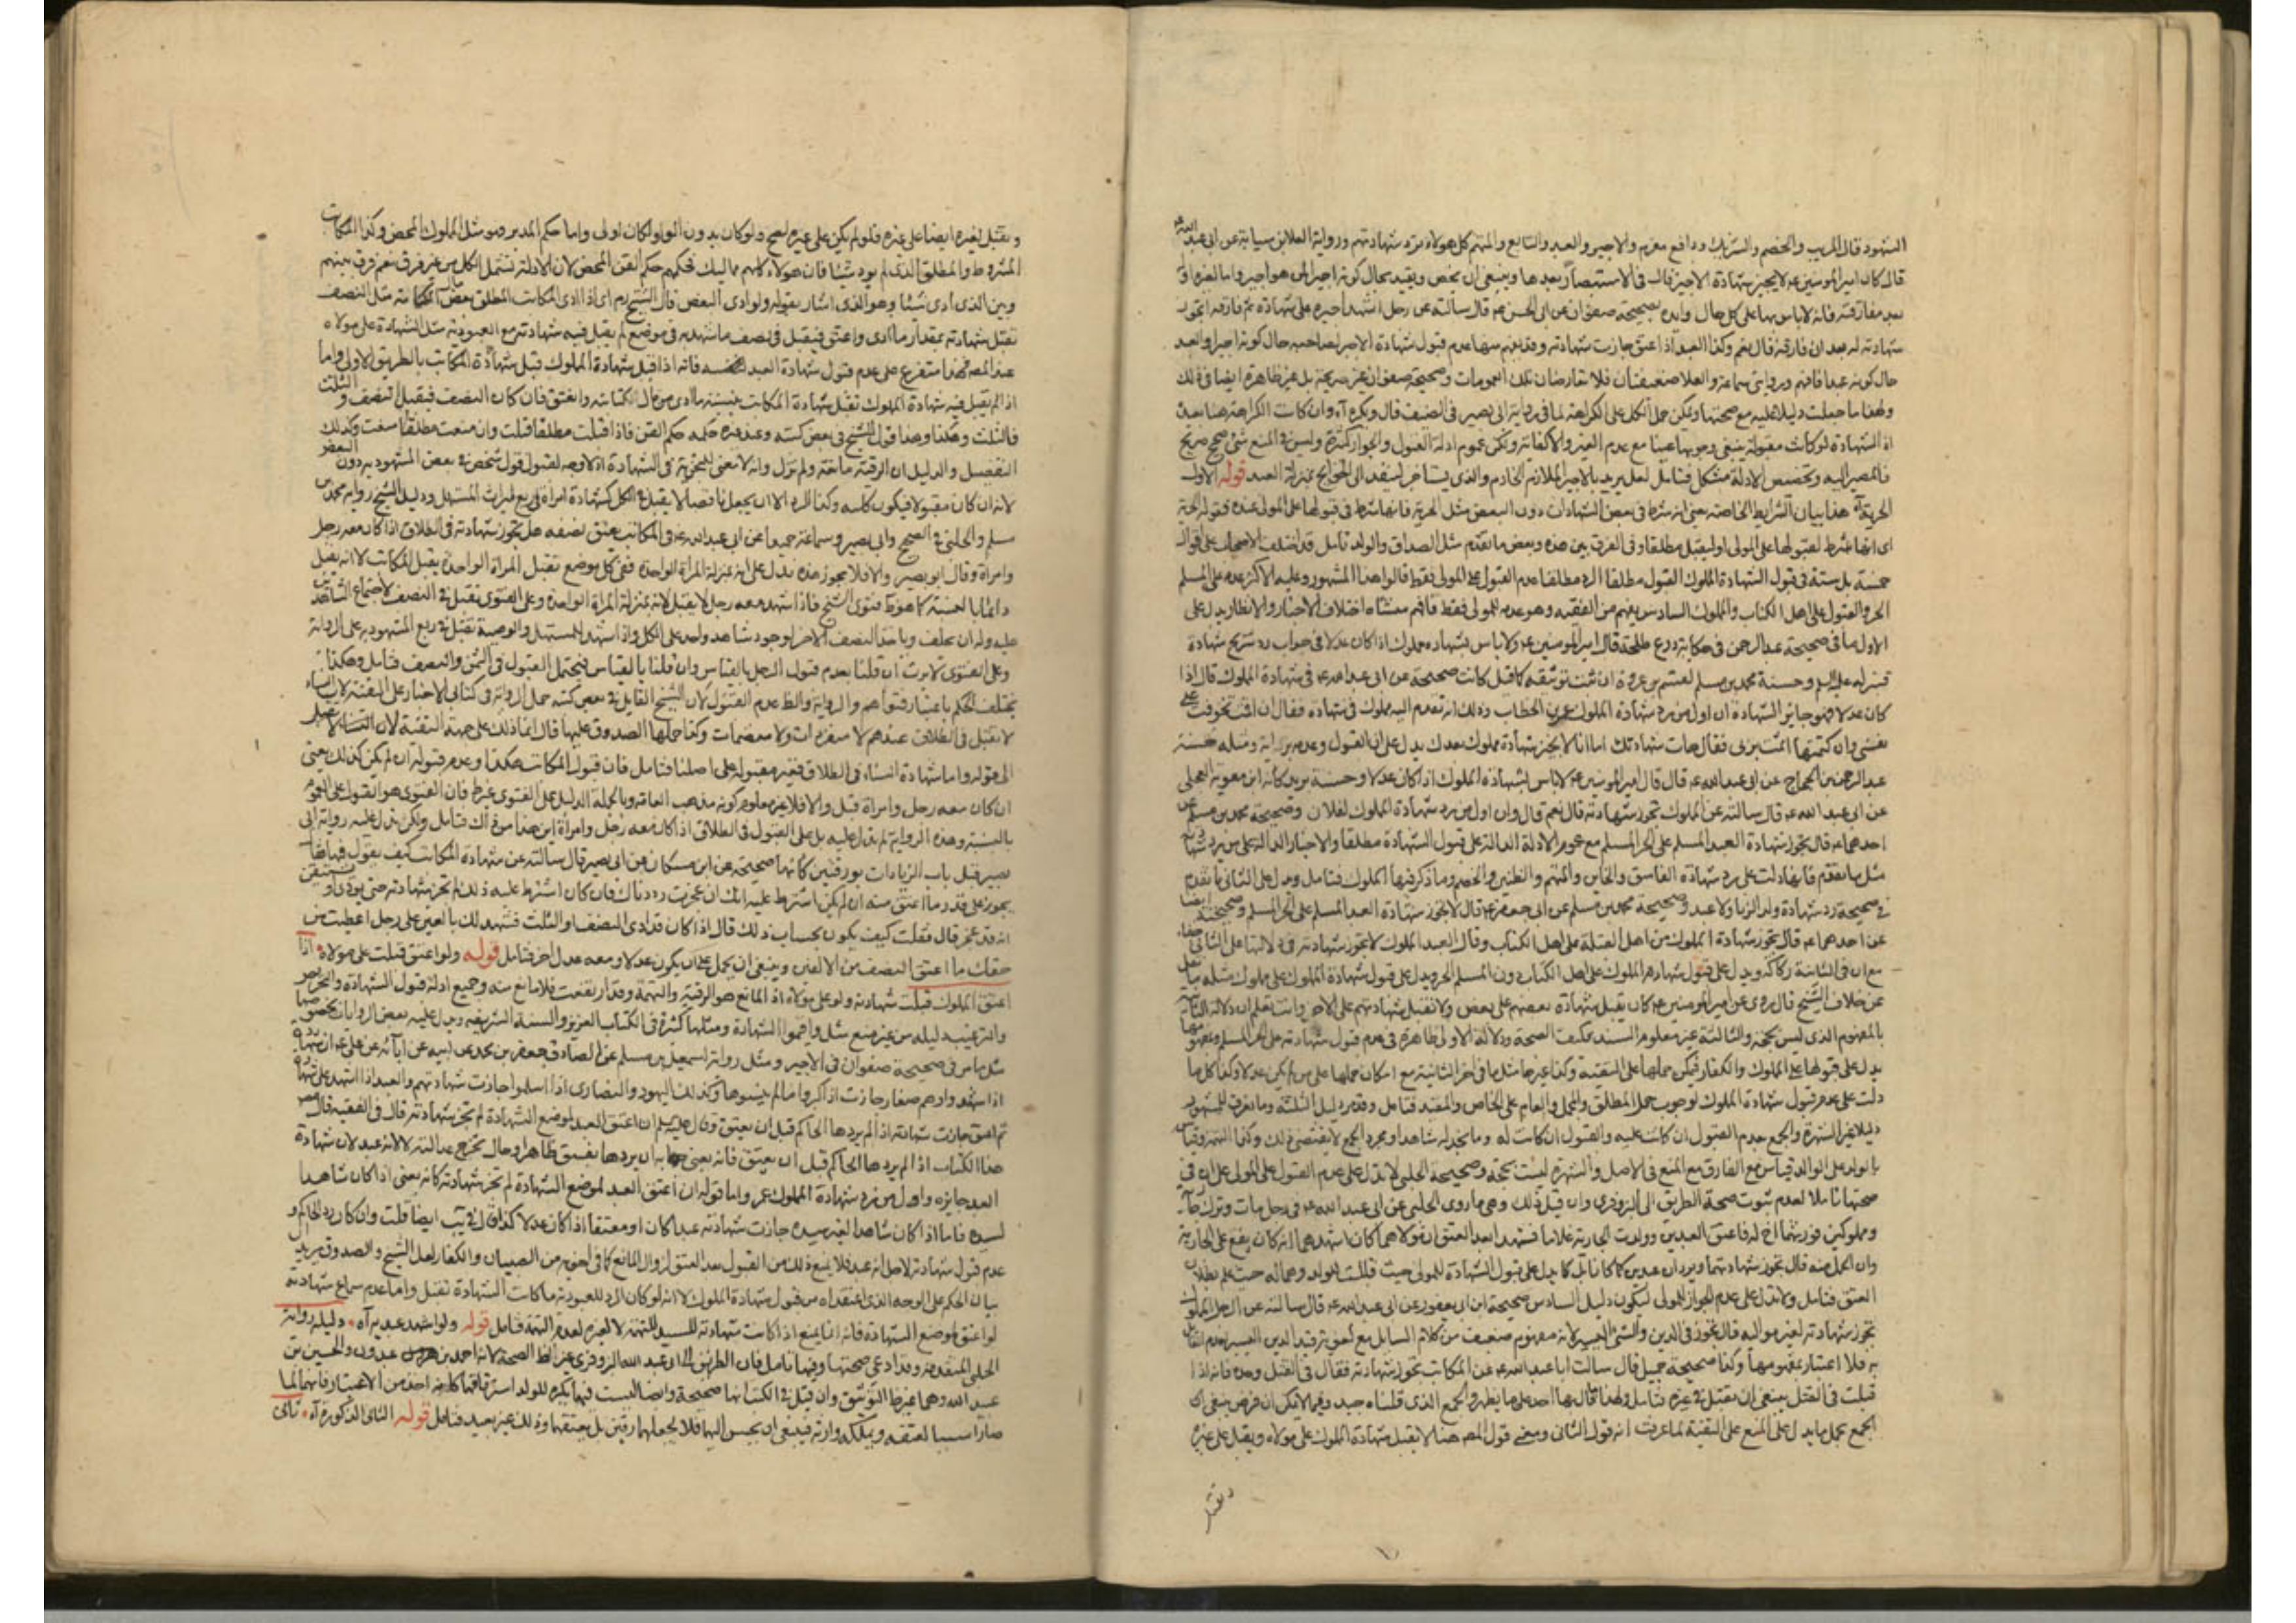 الشهود قال المريب والخصم والشريك ودافع مغرم والاجير والعبد والتابع والمتهم كل هولاء ترد شهادتهم ورواية العلا بن سيابة عن ابى عبد الله
قال كان امير المومنين عه لا يجيز شهادة الاجير قال فى الاستبصار بعدها وينبغى ان يخص ويقيد بحال كونه اجيرا لمن هو اجير واما لغيره او
بعد مفارقته فانه لا باس بها على كل حال وايده بصحيحة صفوان عن ابى الحسن عه قال سألته عن رجل اشهد اجيره على شهادة ثم فارقه اتجوز
شهادته له بعد ان فارقه قال نعم وكذا العبد اذا عتق جازت شهادته وقد يفهم منها عدم قبول شهادة الاجير لصاحبه حال كونه اجيرا والعبد
حال كونه عبدا فافهم وروايتى سماعة والعلا ضعيفتان فلا تعارضان تلك العمومات وصحيحة صفوان غير صريحة بل غير ظاهرة ايضا فى ذلك
ولهذا ما جعلت دليلا عليه مع صحتها ويمكن حمل الكل على الكراهة لما فى رواية ابى بصير قال ويكره آه وان كانت الكراهة هنا
اذ الشهادة لو كانت مقبولة ينبغى وجوبها عينا مع عدم الغير والا كفاية ولكن عموم ادلة القبول والجواز كثيرة وليس فى المنع شئ صحيح صريح
فالمصير اليه وتخصيص الادلة مشكل فتامل لعل يريد بالاجير الملازم الخادم والذى يستاجر لينفذ الى الحوايج بمنزلة العبد قوله الاول
الحرية آه هذا بيان الشرايط الخاصة يعنى انه شرط فى بعض الشهادات دون البعض مثل الحرية فانها شرط فى قبولها على المولى عنده فقوله الحرية
اى انها شرط لقبولها على المولى او ليقبل مطلقا وفى الفرق بين هذه وبعض ما تقدم مثل الصداق والولد تامل قد اختلف الاصحاب على اقوال
خمسة بل ستة فى قبول الشهادة المملوك القبول مطلقا الرد مطلقا عدم القبول على المولى فقط قالوا هذا المشهور وعليه الاكثر عدمه على المسلم
الحر والقبول على اهل الكتاب والمملوك السادس يفهم من الفقيه وهو عدمه للمولى فقط فافهم منشأه اختلاف الاخبار والانظار يدل على
الاول ما فى صحيحة عبد الرحمن فى حكاية درع طلحة قال امير المومنين عه ولا باس بشهادة مملوك اذا كان عدلا فى جواب رد شريح شهادة
قنبر له عليه السلم وحسنة محمد بن مسلم عن ابى عبد الله عه فى شهادة المملوك قال اذا
كان عدلا فهو جايز الشهادة ان اول من رد شهادة المملوك عمر بن الخطاب وذلك انه تقدم اليه مملوك فى شهادة فقال ان اقمت تخوفت على
نفسى وان كتمتها اثمت بربى فقال هات شهادتك اما انا لا نجيز شهادة مملوك بعدك يدل على ان القبول وعدمه ومثله حسنة
عبد الرحمن بن الحجاج عن ابى عبد الله عه قال قال امير المومنين عه لا باس بشهادة المملوك اذا كان عدلا وحسنة بريد كانه ابن معوية العجلى
عن ابى عبد الله عه قال سالته عن المملوك تجوز شهادته قال نعم قال وان اول من رد شهادة المملوك لفلان وصحيحة محمد بن مسلم عن
احدهما عه قال تجوز شهادة العبد المسلم على الحر المسلم مع عموم الادلة الدالة على قبول الشهادة مطلقا والاخبار الدالة على من يرد شهادته
مثل ما تقدم فانها دلت على رد شهادة الفاسق والخاين والمتهم والظنين والخصم وما ذكر فيها المملوك فتامل ويدل على الثانى ما تقدم
فى صحيحة رد شهادة ولد الزنا ولا عبد وصحيحة محمد بن مسلم عن ابى جعفر عه قال لا تجوز شهادة العبد المسلم على الحر المسلم وصحيحته ايضا
عن احدهما عه قال تجوز شهادة المملوك من اهل القبلة على اهل الكتاب وقال العبد المملوك لا تجوز شهادته فى دلالتها على الثانى خفاء
مع ان فى الثانية ركاكة ويدل على قبول شهادة المملوك على اهل الكتاب دون المسلم الحر ويدل على قبول شهادة المملوك على مملوك مثله ما نقل
عن خلاف الشيخ قال روى عن امير المومنين عه كان يقبل شهادة بعضهم على بعض ولا تقبل شهادتهم على الاحر وانت تعلم ان دلالة الثانية
بالمفهوم الذى ليس بحجة والثالثة غير معلوم السند فكيف الصحة ودلالة الاولى ظاهرة فى عدم قبول شهادته على الحر المسلم ومفهومها
يدل على قبولها على المملوك والكفار فيمكن حملها على التقية وكذا غيرها مثل ما فى اخر الثانية مع امكان حملها على من لم يكن عدلا وكذا كل ما
دلت على عدم قبول شهادة المملوك لوجوب حمل المطلق والمجمل والعام على الخاص والمقيد فتامل وقد مر دليل الثلثة وما نعرف للمشهور
دليلا غير الشهرة والجمع بعدم القبول ان كانت عليه والقبول ان كانت له وما نجد له شاهدا ومجرد الجمع لا يقتضى ذلك وكذا التهمة وقياس
بالولد على الوالد قياس مع الفارق مع المنع فى الاصل والشهرة ليست بحجة وصحيحة الحلبى لا تدل على عدم القبول على المولى على ان فى
صحتها تاملا لعدم ثبوت صحة الطريق الى البزوفرى وان قيل ذلك وهى ما روى الحلبى عن ابى عبد الله عه فى رجل مات وترك جارية
ومملوكين فورثهما اخ له فاعتق العبدين وولدت الجارية غلاما فشهدا بعد العتق ان مولاهما كان اشهدهما انه كان يقع على الجارية
وان الحمل منه قال تجوز شهادتهما ويردان عبدين كما كانا بل كما يدل على قبول الشهادة للمولى حيث قبلت للولد وهما له حيث علم بطلان
العتق فتامل ولا تدل على عدم الجواز للمولى لتكون دليل السادس صحيحة ابن ابى يعفور عن ابى عبد الله عه قال سالته عن الرجل المملوك
تجوز شهادته لغير مواليه قال تجوز فى الدين والشئ اليسير لانه مفهوم ضعيف من كلام السايل مع
به فلا اعتبار بمفهومها وكذا صحيحة جميل قال سالت ابا عبد الله عه عن المكاتب تجوز شهادته فقال فى القتل وحده فانه اذا
قبلت فى القتل ينبغى ان يقبل فى غيره فتامل ولهذا ما قال بها احد على ما يظهر والجمع الذى قلناه جيد
الجمع بحمل ما يدل على المنع على التقية لما عرفت انه قول الثانى ومعنى قول المص هنا لا تقبل شهادة المملوك على مولاه ويقبل على غيره
وتقبل
وتقبل لغيره ايضا على غيره فلو لم يكن على غيره لصح ولو كان بدون الواو لكان اولى واما حكم المدبر فهو مثل المملوك المحض وكذا المكاتب
المشروط والمطلق الذى لم يود شيئا فان هولاء كلهم مماليك فحكمهم حكم القن المحض لان الادلة تشمل الكل من غير فرق نعم فرق بينهم
وبين الذى ادى شيئا وهو الذى اشار بقوله ولو ادى البعض قال الشيخ ره اى اذا ادى المكاتب المطلق بعض الكتابة مثل النصف
تقبل شهادته بمقدار ما ادى واعتق فيقبل فى نصف ما شهد به فى موضع لم يقبل فيه شهادته مع العبودية مثل الشهادة على مولاه
عند المص فهذا متفرع على عدم قبول شهادة العبد فانه اذا قبل شهادة المملوك قبل شهادة المكاتب بالطريق الاولى واما
اذا لم يقبل فيه شهادة المملوك تقبل شهادة المكاتب بنسبة ما ادى من مال الكتابة وانعتق فان كان النصف فيقبل النصف والثلث
فالثلث وهكذا وهذا قول الشيخ فى بعض كتبه وعند غيره حكمه حكم القن فاذا قبلت مطلقا قبلت وان منعت مطلقا منعت وكذلك
التفصيل والدليل ان الرقية مانعة ولم تزل وانه لا معنى للتجزية فى الشهادة اذ لا وجه لقبول قول شخص فى بعض المشهود به دون البعض
لانه ان كان مقبولا فيكون كله وكذا الرد الا ان يجعل ناقصا لا يقبل فى الكل كشهادة امراة فى ربع الميراث المستهل ودليل الشيخ رواية محمد بن
مسلم والحلبى فى الصحيح وابى بصير وسماعة جميعا عن ابى عبد الله عه فى المكاتب يعتق نصفه هل تجوز شهادته فى الطلاق اذا كان معه رجل
وامراة وقال ابو بصير والا فلا يجوز هذه تدل على انه بمنزلة المراة الواحدة ففى كل موضع تقبل المراة الواحدة يقبل المكاتب لا انه يقبل
دائما بالنسبة كما هو فتوى الشيخ فاذا شهد معه رجل لا يقبل لانه بمنزلة المراة الواحدة وعلى الفتوى تقبل فى النصف لاجتماع الشاهدين
عليه وله ان يحلف وياخذ النصف الاخر لوجود شاهد واحد على الكل واذا شهد المستهل والوصية تقبل فى ربع المشهود به على الرواية
وعلى الفتوى لا يرث ان قلنا بعدم قبول الرجل بالقياس وان قلنا بالقياس فيحتمل القبول فى الثمن والنصف فتامل وهكذا
يختلف الحكم باعتبار فتواهم والرواية والظ عدم القبول لان الشيخ القايل فى بعض كتبه حمل الرواية فى كتابى الاخبار على التقية لان النساء
لا تقبل فى الطلاق عندهم لا منفردات ولا منضمات وكذا حملها الصدوق عليها قال انما ذلك على جهة التقية
الى قوله واما شهادة النساء فى الطلاق فغير مقبولة على اصلنا فتامل فان قبول المكاتب هكذا وعدم قبوله ان لم يكن كذلك يعنى
ان كان معه رجل وامراة قبل والا فلا غير معلوم كونه مذهب العامة وبالجملة الدليل على الفتوى غير ظ فان الفتوى هو القبول على العموم
بالنسبة وهذه الرواية لم تدل عليه بل على القبول فى الطلاق اذا كان معه رجل وامراة اين هذا من ذلك فتامل ولكن تدل عليه رواية ابى
بصير قبل باب الزيادات بورقتين كانها صحيحة عن ابن مسكان عن ابى بصير قال سالته عن شهادة المكاتب كيف يقول فيها قال
يجوز على قدر ما اعتق منه ان لم يكن اشترط عليه انك ان عجزت رددناك فان كان اشترط عليه ذلك لم تجز شهادته حتى يودى او يستيقن
انه قد عجز قال فقلت كيف يكون بحساب ذلك قال اذا كان قد ادى النصف او الثلث فشهد لك بالفين على رجل اعطيت من
حقك ما اعتق النصف من الالفين وينبغى ان يحمل على ان يكون عدلا ومعه عدل اخر فتامل قوله ولو اعتق قبلت على مولاه اذا
اعتق المملوك قبلت شهادته ولو على مولاه اذ المانع هو الرقية والتهمة وقد ارتفعت فلا مانع منه وجميع ادلة قبول الشهادة والتحريص
والترغيب دليله من غير منع مثل واقيموا الشهادة ومثلها كثيرة فى الكتاب العزيز والسنة الشريفه ويدل عليه بعض الروايات بخصوصها
مثل ما مر فى صحيحة صفوان فى الاجير ومثل رواية اسمعيل بن مسلم عن الصادق جعفر بن محمد عن ابيه عن ابائه عن على عه ان شهادة
اذا شهدوا وهم صغار جازت اذا كبروا ما لم ينسوها وكذلك اليهود والنصارى اذا اسلموا جازت شهادتهم والعبد اذا اشهد على شهادة
ثم اعتق جازت شهادته اذا لم يردها الحاكم قبل ان يعتق وقال عليه السلم ان اعتق العبد لموضع الشهادة لم تجز شهادته قال فى الفقيه قال مص
هذا الكتاب اذا لم يردها الحاكم قبل ان يعتق فانه يعنى به ان يردها بفسق ظاهر او حال تخرج عدالته لا لانه عبد لان شهادة
العبد جايزه واول من رد شهادة المملوك عمر واما قوله ان اعتق العبد لموضع الشهادة لم تجز شهادته كانه يعنى اذا كان شاهدا
لسيده فاما اذا كان شاهدا لغير سيده جازت شهادته عبدا كان او معتقا اذا كان عدلا كذا قال فى يب ايضا قلت وان كان رد الحاكم و
عدم قبول شهادته لاجل انه عبد فلا يمنع ذلك من القبول بعد العتق لزوال المانع كما فى اخويه من الصبيان والكفار لعل الشيخ والصدوق يريد
بيان الحكم على الوجه الذى اعتقداه من قبول شهادة المملوك لا انه لو كان الرد للعبودية ما كانت الشهادة تقبل واما عدم سماع شهادته
لو اعتق لموضع الشهادة فانه انما يمنع اذا كانت شهادته للسيد للتهمة لا لغيره لعدم التهمة فتامل قوله ولو اشهد عبديه آه دليله رواية
الحلبى المتقدمة وقد ادعى صحتها وفيها تامل فان الطريق الى ابى عبد الله البزوفرى غير ظ الصحة لانه احمد بن عبدون والحسين بن
عبيد الله وهما غير ظ التوثيق وان قيل فى الكتب انها صحيحة وايضا ليست فيها يكره للولد استرقاقهما
صارا سببا لعتقه ويملكه وارثه فينبغى ان يحسن اليهما فلا يجعلهما رقين بل يعتقهما وذلك غير بعيد فتامل قوله الثانى الذكورة آه تاتى